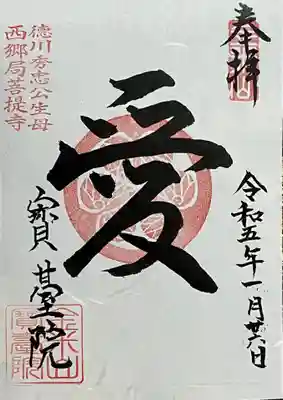 奉拝
令和五年一月廿六日
愛
徳川秀忠公生母
西郷局菩提寺
寳䑓院
金米山
寳臺院